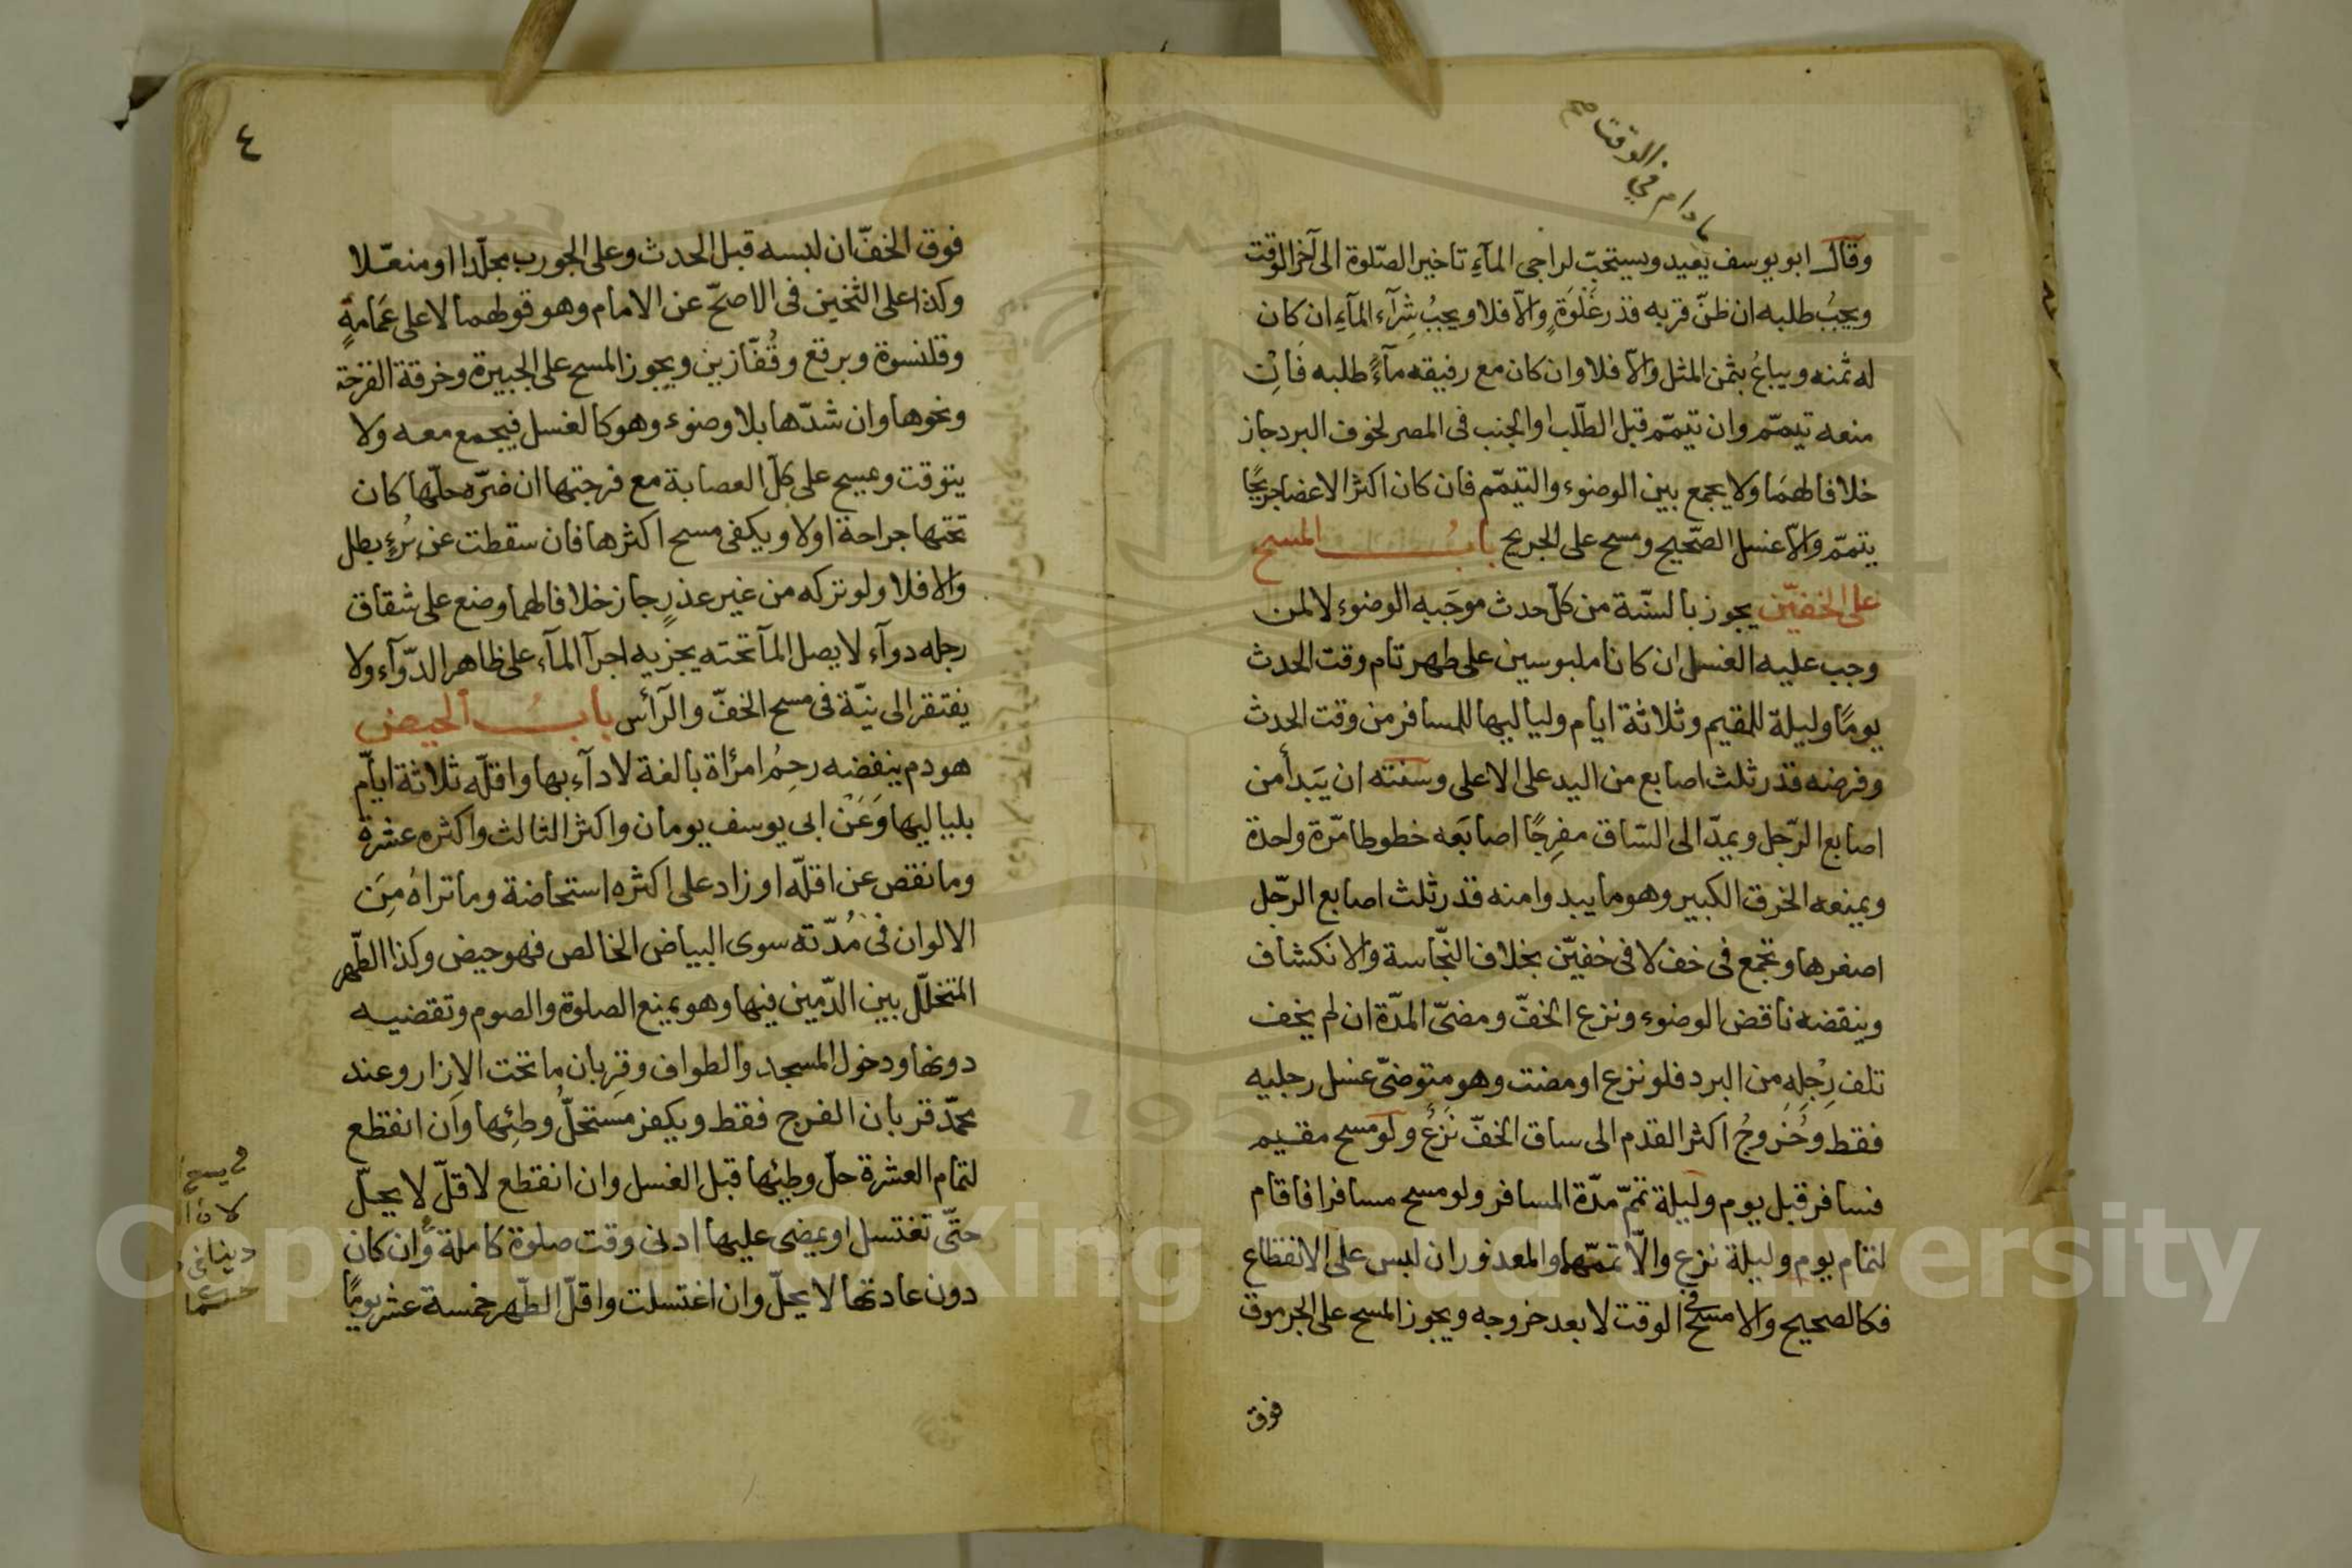 ما دام في الوقت صح
وقال ابو يوسف يعيد ويستحبّ لراجى المآءِ تاخير الصّلوة الى آخر الوقت
ويجبُ طلبه ان ظنّ قربه قدر غَلْوَةٍ والّا فلا ويجبُ شِرَآء المآءِ ان كان
له ثمنه ويباعُ بثمن المثل والّا فلا وان كان مع رفيقه مآءً طلبه فاِن
منعه تيمّم وان تيمّم قبل الطّلب او الجنب فى المصر لخوف البرد جاز
خلافا لهمَا ولا يجمع بين الوضوء والتيمّم فان كان اكثر الاعضا جريحًا
يتمّم والّا غسل الصّحيح ومسح على الجريح بابُ المسح
على الخفيّن يجوز بالسّنة من كلّ حدث موجَبه الوضوء لا لمن
وجب عليه الغسل ان كانا ملبوسين على طهر تام وقت الحدث
يومًا وليلة للمقيم وثلاثة ايام ولياليها للمسافر من وقت الحدث
وفرضه قدر ثلث اصابع من اليد على الاعلى وسنته ان يَبدأ من
اصابع الرّجل ويمدّ الى السّاق مفرِجًا اصابعَه خطوطا مّرة واحدة
ويمنعه الخرق الكبير وهو ما يبدوا منه قدر ثلث اصابع الرّجل
اصغرها وتجمع فى خف لا فى خفيّن بخلاف النّجاسة والانكشاف
وينقضه ناقض الوضوء ونزع الخفّ ومضىّ المدّة ان لم يخف
تلف رِجْلِهِ من البرد فلو نزع او مضت وهو متوضّئ غسل رجليه
فقط وخُروجُ اكثر القدم الى ساق الخفّ نَزعٌ ولو مسح مقيم
فسافر قبل يوم وليلة تمّم مدّة المسافر ولو مسح مسافر افاقام
لتمام يوم وليلة نزع والّا تممّها والمعذور ان لبس على الانقطاع
فكالصحيح والا مسح فى الوقت لا بعد خروجه ويجوز المسح على الجرموق
فوق
٤
فوق الخفّ ان لبسه قبل الحدث وعلى الجورب مجلّدا او منعّلا
وكذا على الثخين فى الاصحّ عن الامام وهو قولهما لا على عَمَامةٍ
وقلنسوة وبرقع وقُفّازين ويجوز المسح على الجبيرة وخرقة القرحة
ونحوها وان شدّها بلا وضوء وهو كالغسل فيجمع معه ولا
يتوقت ويمسح على كلّ العصابة مع فرجتها ان ضرّه حلّها كان
تحتها جراحة اولا ويكفى مسح اكثرها فان سقطت عن بُرءٍ بطل
والا فلا ولو تركه من غير عذرٍ جاز خلافا لهما وضع على شقاق
رجله دوآء لا يصل المآ تحته يجزيه اجرآ المآء على ظاهر الدّوآء ولا
يفتقر الى نيّة فى مسح الخفّ والرّأس بابُ الحيض
هو دم ينفضه رحِمُ امرأة بالغة لا دآء بها واقلّه ثلاثة ايّام
بلياليها وَعَنْ ابى يوسف يومان واكثر الثالث واكثره عشرة
وما نقص عن اقلّه او زاد على اكثره استحاضة وما تراهُ مِنَ
الالوان فى مُدّته سوى البياض الخالص فهو حيض وكذا الطّهر
المتخلّل بين الدّمين فيها وهو يمنع الصلوة والصوم وتقضيه
دونها ودخول المسجد والطواف وقِربان ما تحت الاِزار وعند
محمّد قربان الفرج فقط ويكفر مستحلُّ وطئِها وان انقطع
لتمام العشرة حلّ وطئِها قبل الغسل وان انقطع لاقلّ لا يحلّ
حتّى تغتسل او يمضى عليها ادنى وقت صلوة كاملة وَّان كان
دون عادتها لا يحلّ وان اغتسلت واقلّ الطّهر خمسة عشر يومًا
Copyright © King Saud University
195